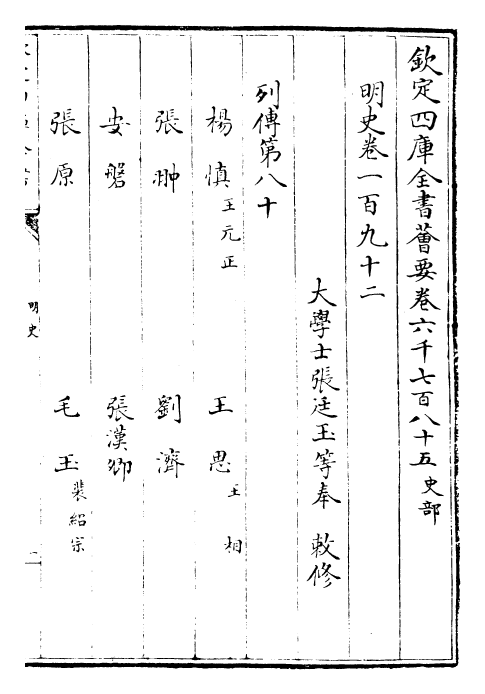 欽定四庫全書薈要卷六千七百八十五 史部
明史卷一百九十二
大學士張廷玉等奉 敕修
列傳第八十
楊慎 王元正 王思 王相
張翀 劉濟
安磐 張漢卿
張原 毛玉 裴紹宗
明史